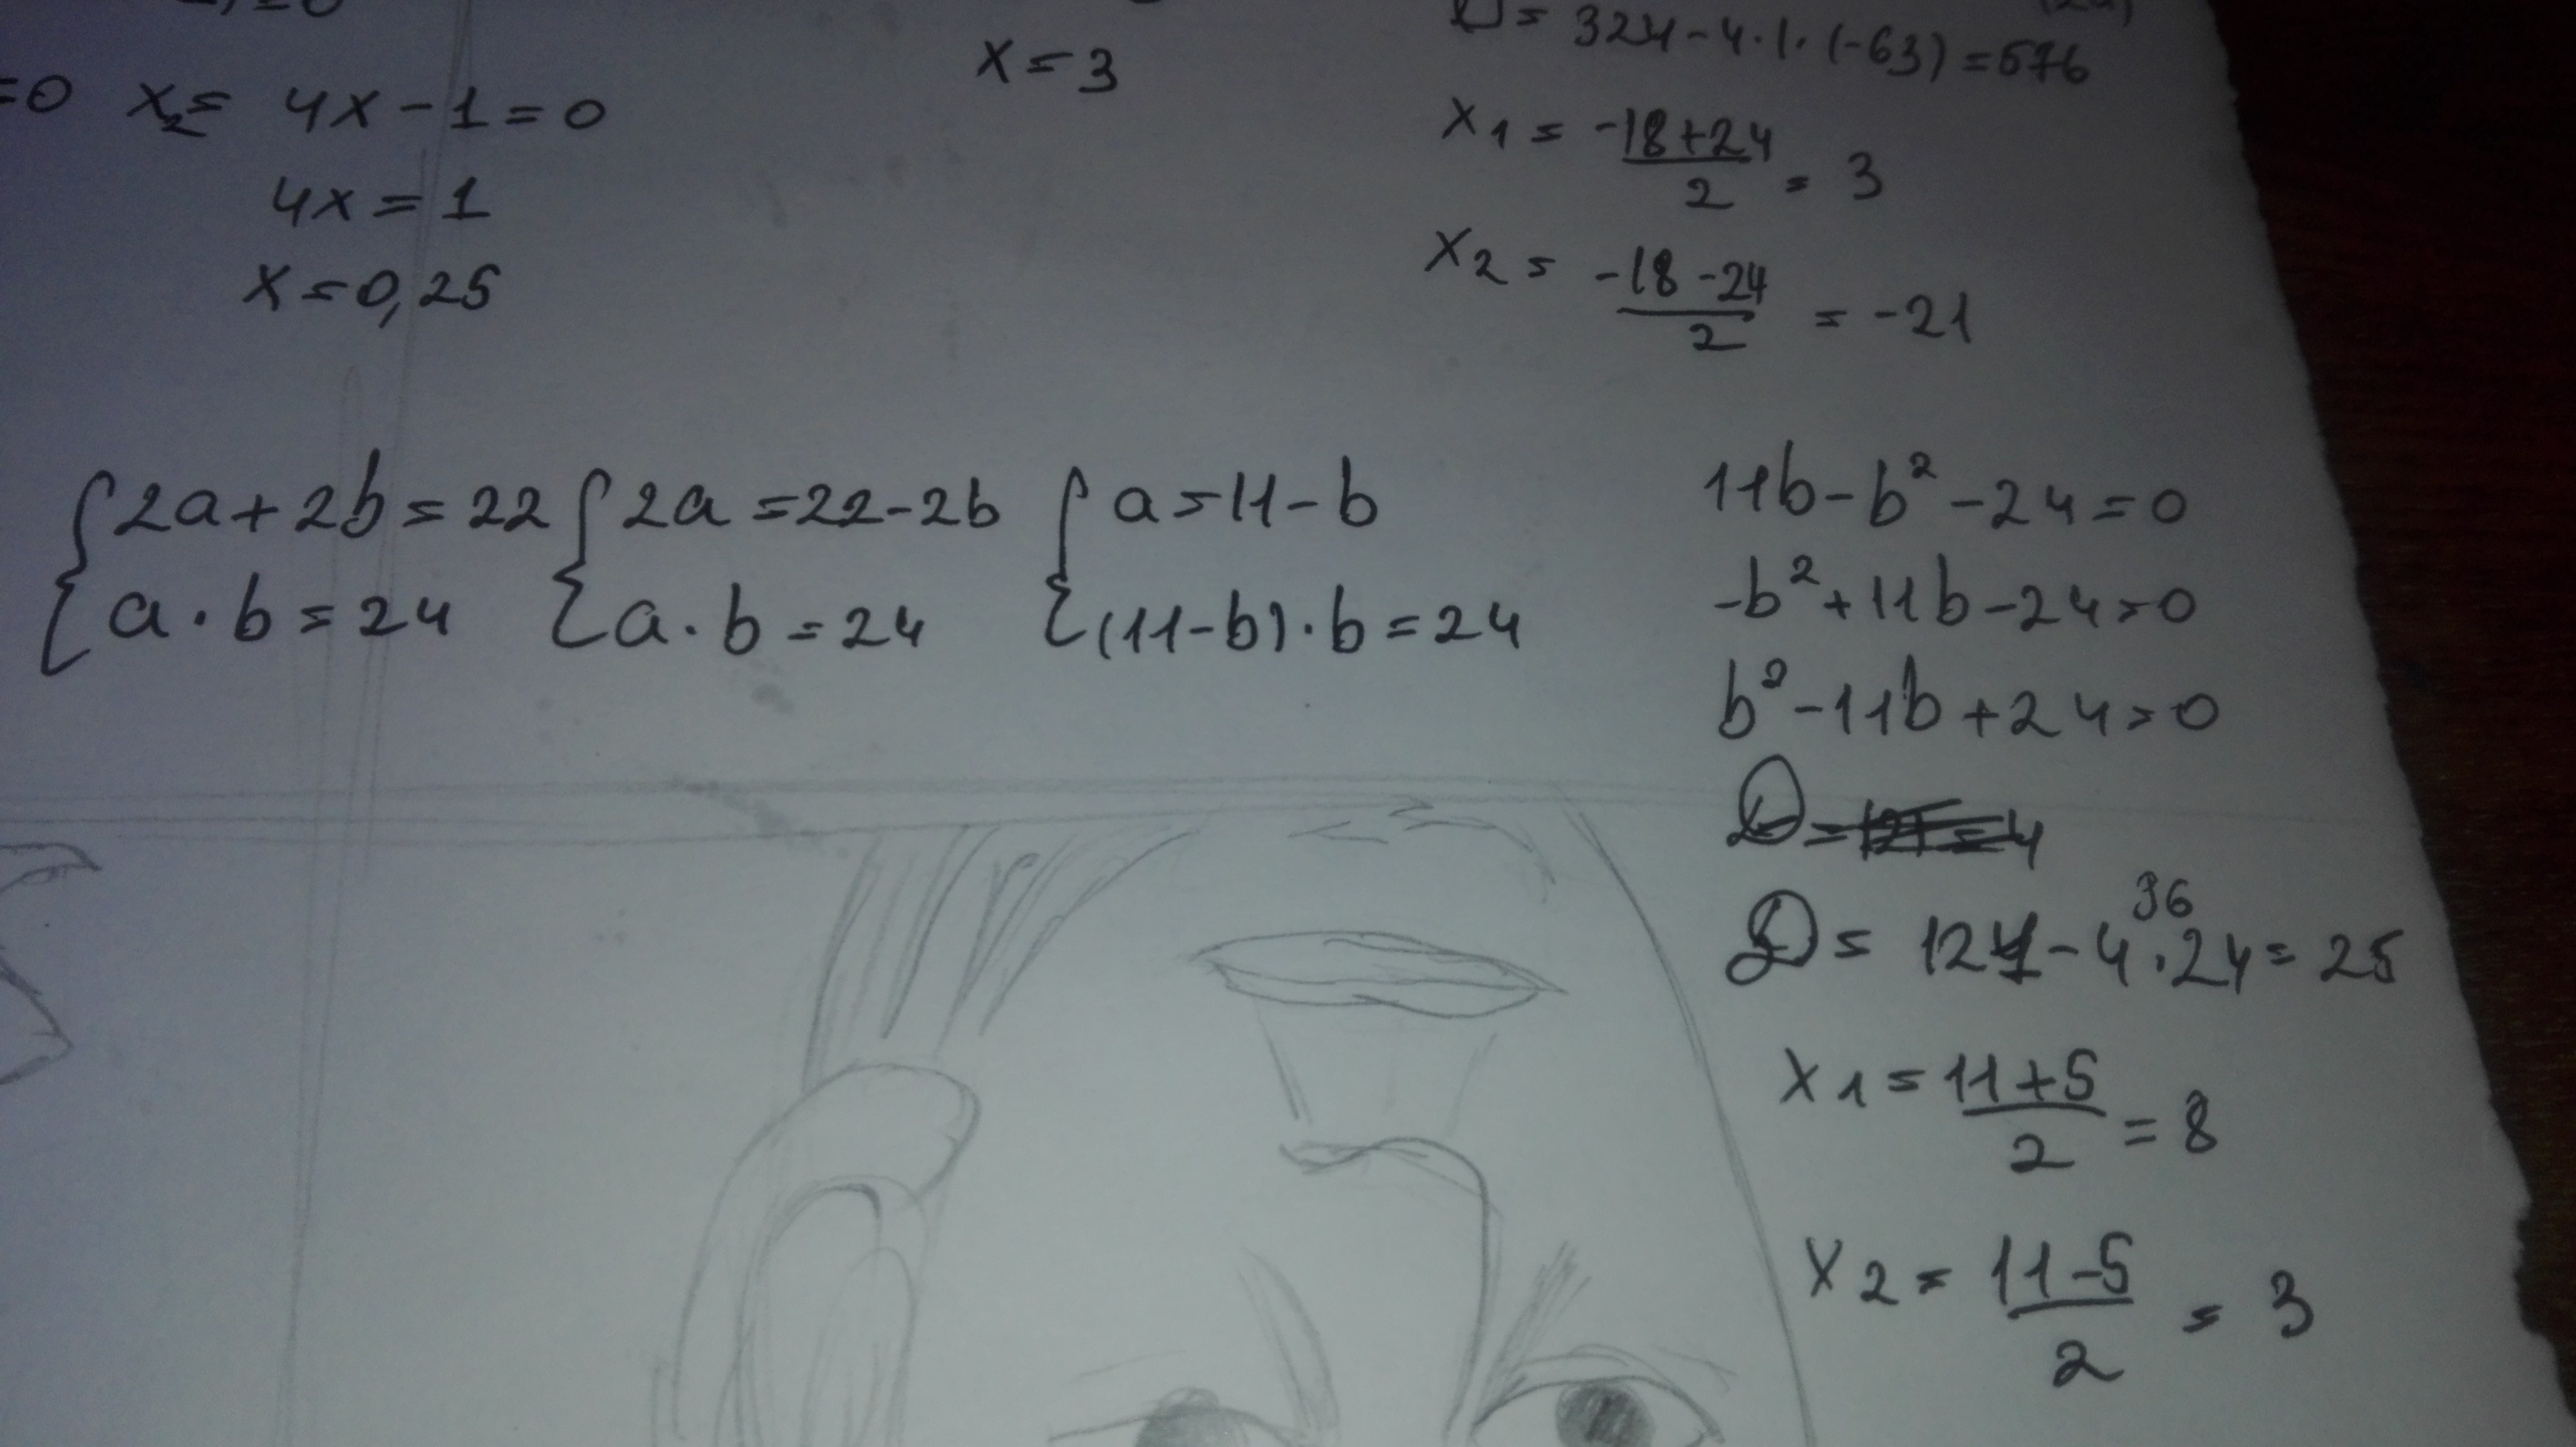 =0 x₂= 4x-1=0
4x=1
x=0,25
x=3
D= 324-4·1·(-63)=576
x₁= -18+24/2 = 3
x₂= -18-24/2 = -21
{2a+2b=22 {2a=22-2b {a=11-b
{a·b=24 {a·b=24 {(11-b)·b=24
11b-b²-24=0
-b²+11b-24=0
b²-11b+24=0
D=
36
D= 121-4·24=25
x₁= 11+5/2 = 8
x₂= 11-5/2 = 3